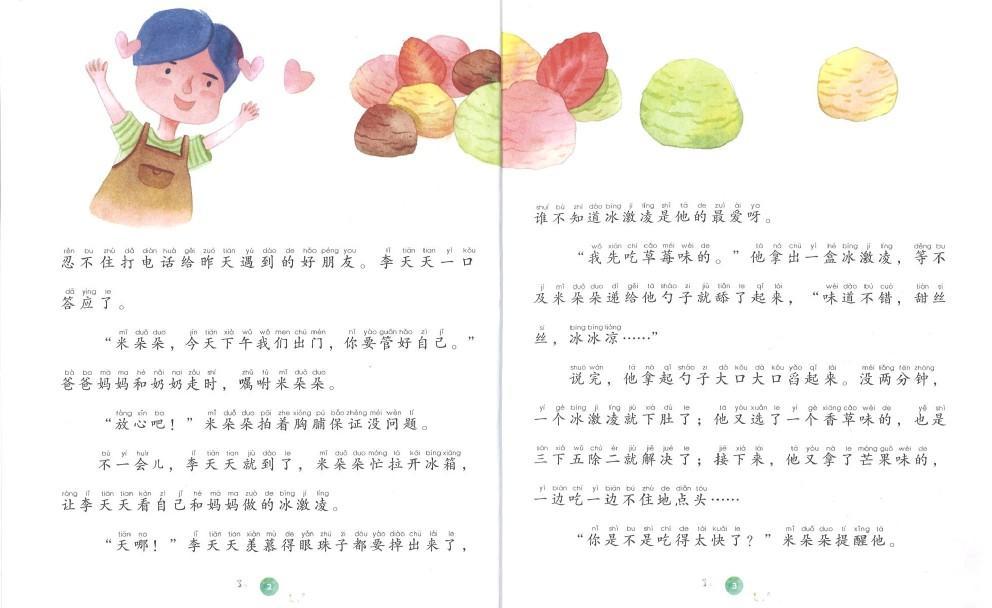 rěn bu zhù dǎ diàn huà gěi zuó tiān yù dào de hǎo péng you lǐ tiān tian yì kǒu
忍不住打电话给昨天遇到的好朋友。李天天一口
dā ying le
答应了。
mǐ duǒ duo jīn tiān xià wǔ wǒ men chū mén nǐ yào guǎn hǎo zì jǐ
“米朵朵，今天下午我们出门，你要管好自己。”
bà ba mā ma hé nǎi nai zǒu shí zhǔ fù mǐ duǒ duo
爸爸妈妈和奶奶走时，嘱咐米朵朵。
fàng xīn ba mǐ duǒ duo pāi zhe xiōng pú bǎo zhèng méi wèn tí
“放心吧！”米朵朵拍着胸脯保证没问题。
bù yí huìr lǐ tiān tian jiù dào le mǐ duǒ duo máng lā kāi bīng xiāng
不一会儿，李天天就到了，米朵朵忙拉开冰箱，
ràng lǐ tiān tian kàn zì jǐ hé mā ma zuò de bīng jī líng
让李天天看自己和妈妈做的冰激凌。
tiān na lǐ tiān tian xiàn mù de yǎn zhū zi dōu yào diào chū lái le
“天哪！”李天天羡慕得眼珠子都要掉出来了，
2
shuí bù zhī dào bīng jī líng shì tā de zuì ài ya
谁不知道冰激凌是他的最爱呀。
wǒ xiān chī cǎo méi wèi de tā ná chū yì hé bīng jī líng děng bu
“我先吃草莓味的。”他拿出一盒冰激凌，等不
jí mǐ duǒ duo dì gěi tā sháo zi jiù tiǎn le qǐ lái wèi dào bú cuò tián sī
及米朵朵递给他勺子就舔了起来，“味道不错，甜丝
sī bīng bīng liáng
丝，冰冰凉……”
shuō wán tā ná qǐ sháo zi dà kǒu dà kǒu yǎo qǐ lái méi liǎng fēn zhōng
说完，他拿起勺子大口大口舀起来。没两分钟，
yí gè bīng jī líng jiù xià dù le tā yòu xuǎn le yí gè xiāng cǎo wèi de yě shì
一个冰激凌就下肚了；他又选了一个香草味的，也是
sān xià wǔ chú èr jiù jiě jué le jiē xià lái tā yòu ná le máng guǒ wèi de
三下五除二就解决了；接下来，他又拿了芒果味的，
yì biān chī yì biān bú zhù de diǎn tóu
一边吃一边不住地点头……
nǐ shì bu shì chī de tài kuài le mǐ duǒ duo tí xǐng tā
“你是不是吃得太快了？”米朵朵提醒他。
3